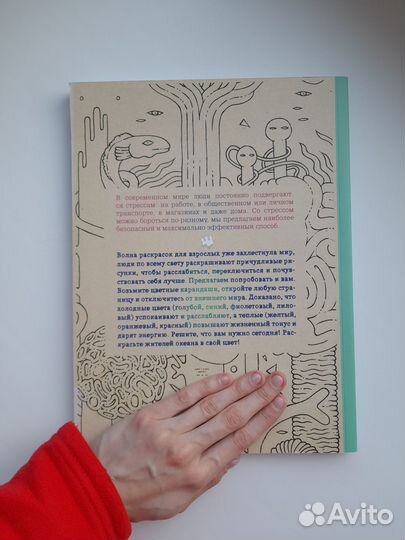 В современном мире люди постоянно подвергают
ся стрессам: на работе, в общественном или личном
транспорте, в магазинах и даже дома. Со стрессом
можно бороться по-разному, мы предлагаем наиболее
безопасный и максимально эффективный способ.
Волна раскрасок для взрослых уже захлестнула мир,
люди по всему свету раскрашивают причудливые ри-
сунки, чтобы расслабиться, переключиться и почув-
ствовать себя лучше. Предлагаем попробовать и вам.
Возьмите цветные карандаши, откройте любую стра-
ницу и отключитесь от внешнего мира. Доказано, что
холодные цвета (голубой, синий, фиолетовый, лило-
вый) успокаивают и расслабляют, а теплые (желтый,
оранжевый, красный) повышают жизненный тонус и
дарят энергию. Решите, что вам нужно сегодня! Рас-
красьте жителей океана в свой цвет!
Avito